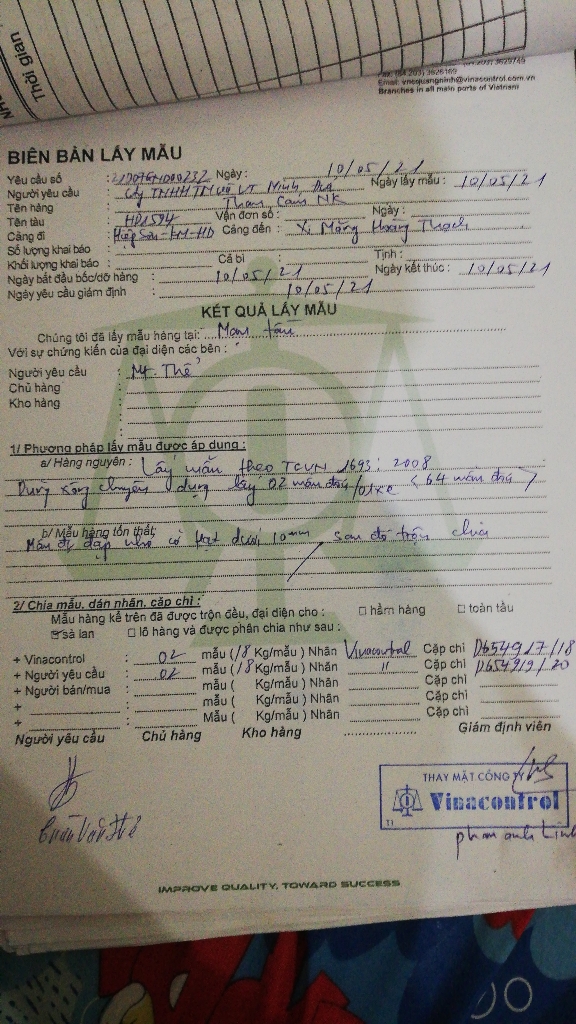 Thời gian
Fax: (84.203) 3826169
Email: vncquangninh@vinacontrol.com.vn
Branches in all main ports of Vietnam
BIÊN BẢN LẤY MẪU
Yêu cầu số : Ngày : 10/05/21
Người yêu cầu : Cty TNHH TM và VT Minh Ngày lấy mẫu : 10/05/21
Tên hàng : Than Cám NK
Tên tàu : HD1594 Vận đơn số : Ngày :
Cảng đi : Cảng đến : Xi Măng Hoàng Thạch
Số lượng khai báo :
Khối lượng khai báo : Ca bi : Tịnh :
Ngày bắt đầu bốc/dỡ hàng : 10/05/21 Ngày kết thúc : 10/05/21
Ngày yêu cầu giám định : 10/05/21
KẾT QUẢ LẤY MẪU
Chúng tôi đã lấy mẫu hàng tại:
Với sự chứng kiến của đại diện các bên :
Người yêu cầu : Mr. Thế
Chủ hàng :
Kho hàng :
1/ Phương pháp lấy mẫu được áp dụng :
a/ Hàng nguyên : Lấy mẫu theo TCVN 1693: 2008
Dùng xẻng chuyên dụng lấy 02 mẫu đơn/01xe (64 mẫu đơn)
b/ Mẫu hàng tổn thất:
Mẫu đập nhỏ cỡ hạt dưới 10mm, sau đó trộn chia
2/ Chia mẫu, dán nhãn, cặp chì :
Mẫu hàng kể trên đã được trộn đều, đại diện cho : □ hầm hàng □ toàn tàu
☑ sà lan □ lô hàng và được phân chia như sau :
+ Vinacontrol : 02 mẫu (18 Kg/mẫu ) Nhãn Vinacontrol Cặp chì D654917/18
+ Người yêu cầu : 02 mẫu (18 Kg/mẫu ) Nhãn " Cặp chì D654919/20
+ Người bán/mua : mẫu ( Kg/mẫu ) Nhãn Cặp chì
+ : mẫu ( Kg/mẫu ) Nhãn Cặp chì
+ : Mẫu ( Kg/mẫu ) Nhãn Cặp chì
Người yêu cầu Chủ hàng Kho hàng Giám định viên
THAY MẶT CÔNG TY
Vinacontrol
T1
phạm anh Linh
IMPROVE QUALITY, TOWARD SUCCESS